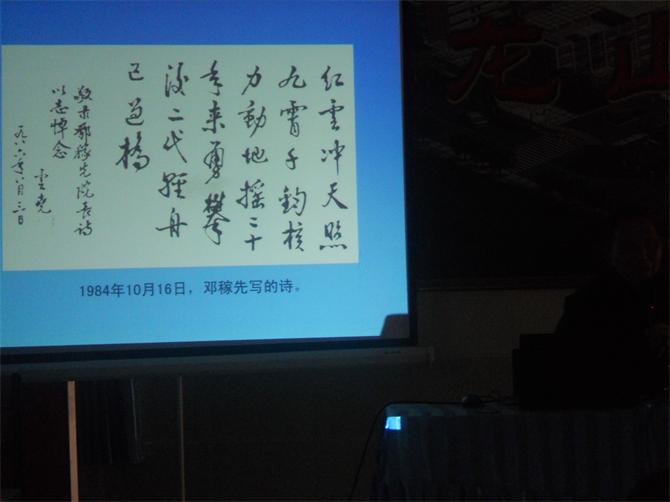 红雲冲天照
九霄千钧核
力動地摇二十
年来勇攀
後二代轻舟
已过桥
敬录邓稼先院长诗
以志悼念
一九八六年八月三日
1984年10月16日，邓稼先写的诗。
龙山